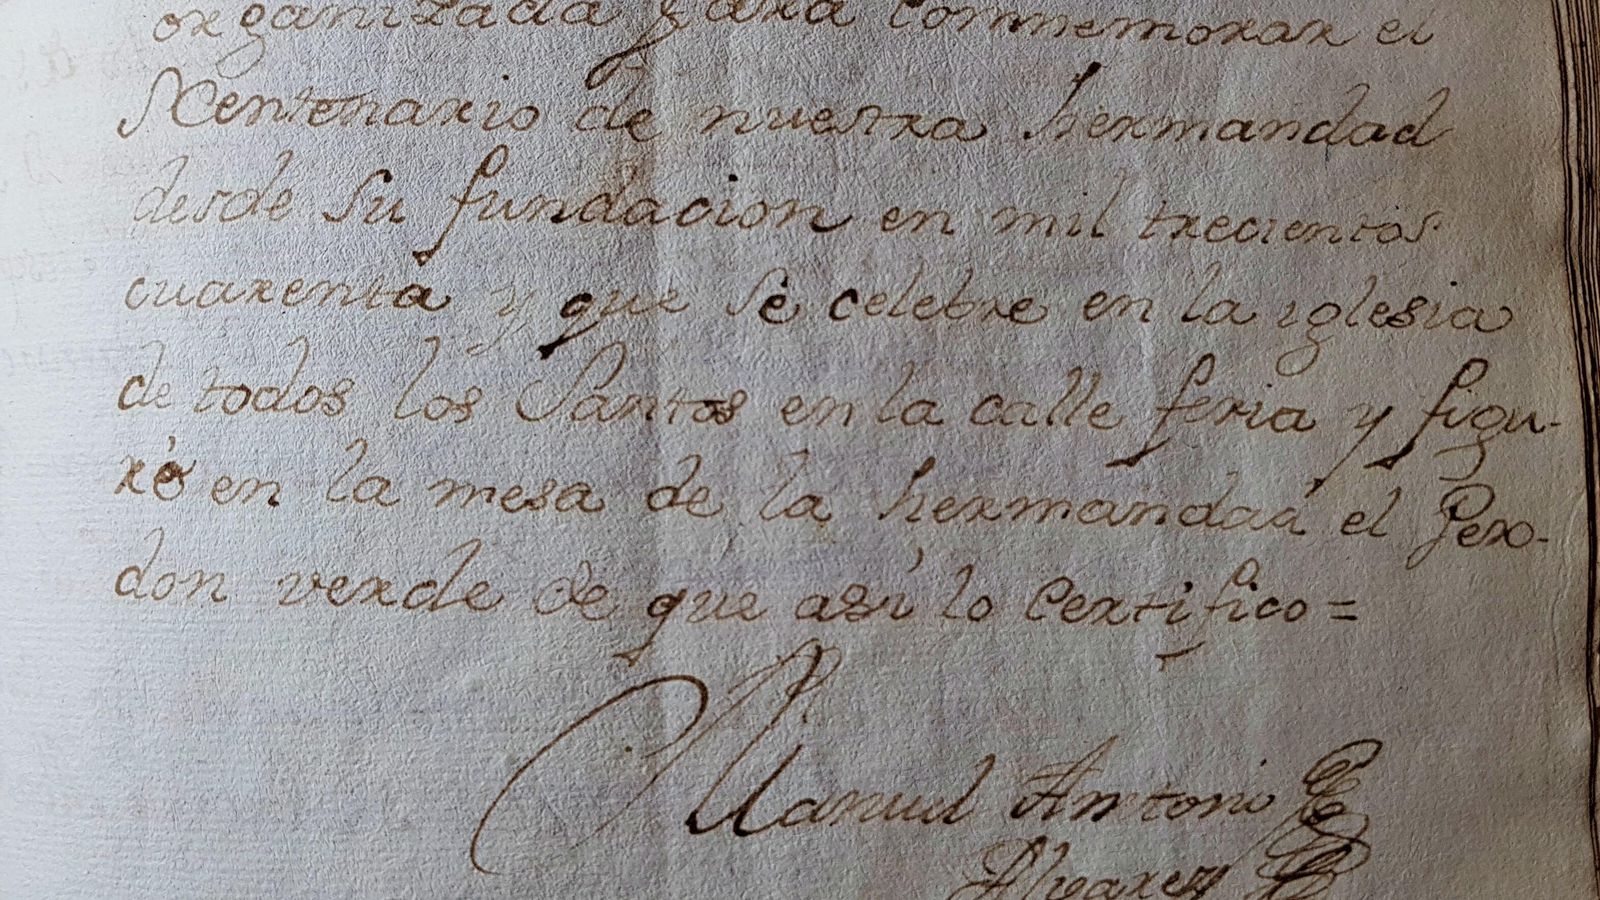 organizada para conmemorar el
Centenario de nuestra hermandad
desde su fundacion en mil trecientos
cuarenta y que se celebre en la iglesia
de todos los Santos en la calle feria y figu-
re en la mesa de la hermandad el Pen-
don verde de que así lo certifico=
Manuel Antonio
Alvarez